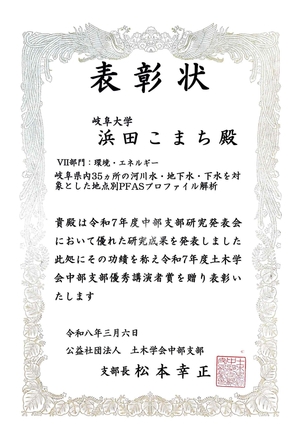 表彰状
岐阜大学
浜田こまち殿
VII部門：環境・エネルギー
岐阜県内35ヵ所の河川水・地下水・下水を対
象とした地点別PFASプロファイル解析
貴殿は令和7年度中部支部研究発表会
において優れた研究成果を発表しました
此処にその功績を称え令和7年度土木学
会中部支部優秀講演者賞を贈り表彰い
たします
令和八年三月六日
公益社団法人　土木学会中部支部
支部長 松本幸正